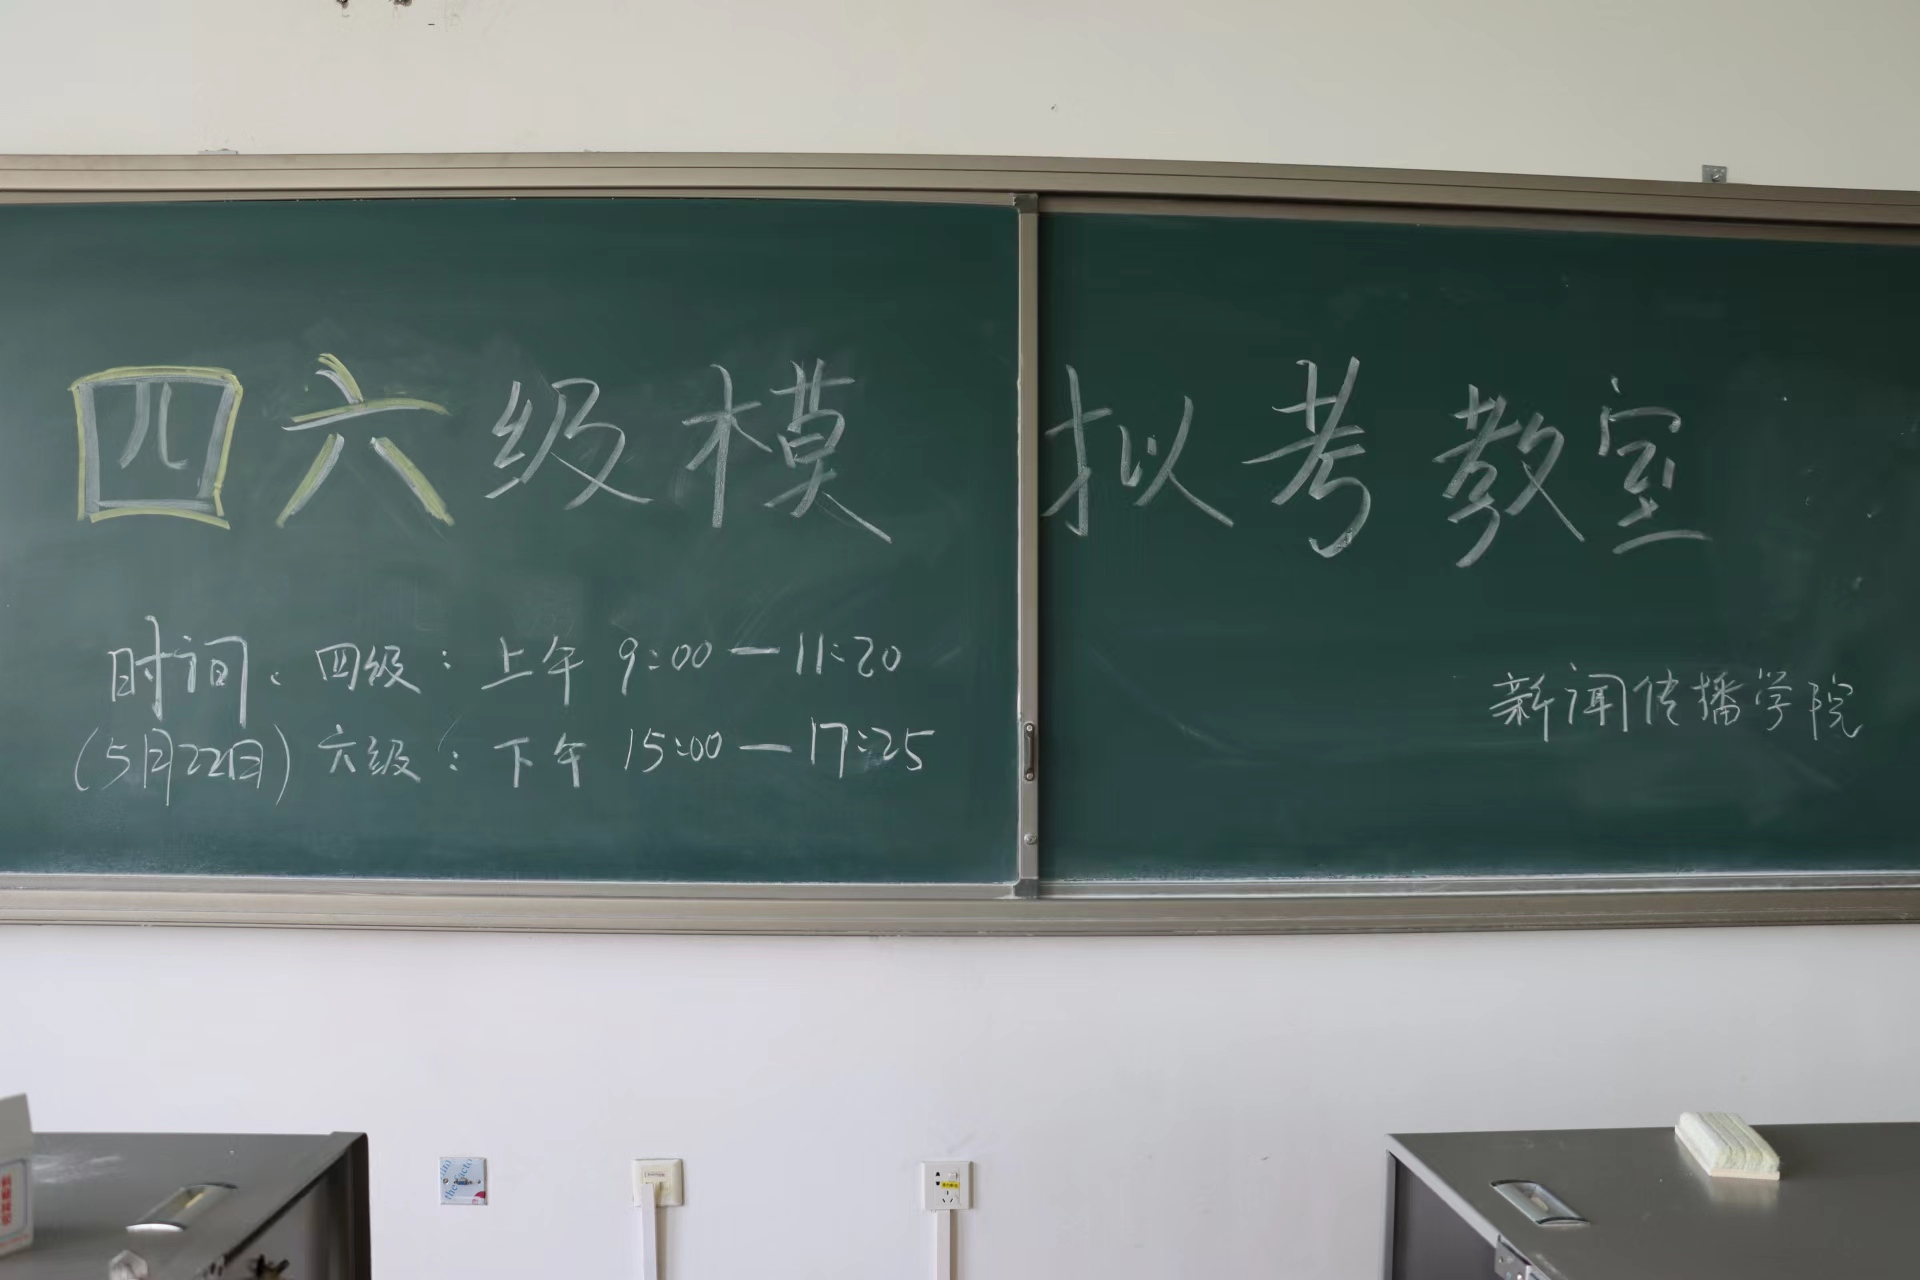 四六级模拟考教室
时间：四级：上午 9:00—11:20
(5月22日) 六级：下午 15:00—17:25
新闻传播学院